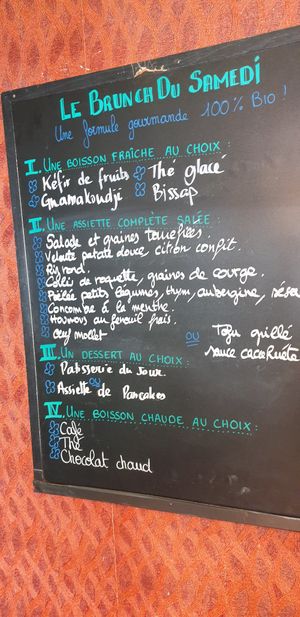 LE BRUNCH DU SAMEDI
Une formule gourmande 100% Bio !
I. UNE BOISSON FRAÎCHE AU CHOIX :
Kéfir de fruits Thé glacé
Gnamakoudji Bissap
II. UNE ASSIETTE COMPLÈTE SALÉE :
Salade et graines torréfiées.
Velouté patate douce, citron confit.
Riz rond.
de roquette, graines de courge.
Poêlée petits légumes, thym, aubergine,
Concombre à la menthe.
Houmous au fenouil frais.
Oeuf mollet ou Tofu grillé
sauce cacahuète
III. UN DESSERT AU CHOIX :
Patisserie du Jour.
ou
Assiette de Pancakes
IV. UNE BOISSON CHAUDE AU CHOIX :
Café
Thé
Chocolat chaud